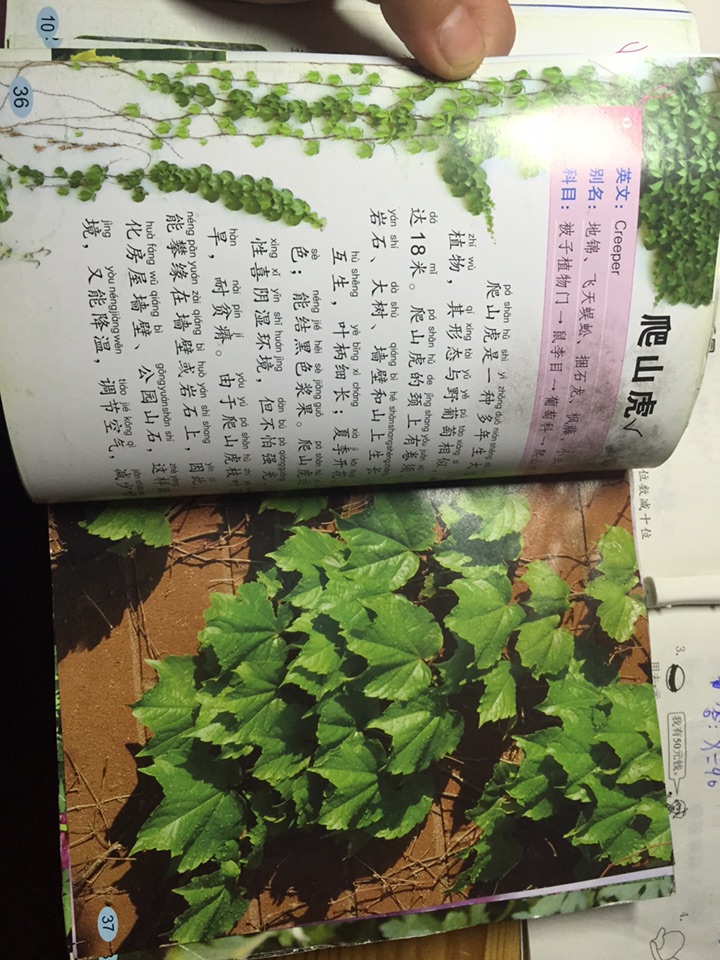 爬山虎√
英文：Creeper
别名：地锦、飞天蜈蚣、捆石虎、枫藤
科目：被子植物门→鼠李目→葡萄科→
pá shān hǔ shì yì zhǒng duō nián shēng
爬山虎是一种多年生大
zhí wù qí xíng tài yǔ yě pú táo xiāng sì
植物，其形态与野葡萄相似
dá mǐ pá shān hǔ de jǐng shang yǒu
达18米。爬山虎的颈上有卷须
yán shí dà shù qiáng bì hé shān shang shēng zhǎng
岩石、大树、墙壁和山上生长
hù shēng yè bǐng xì cháng xià jì kāi
互生，叶柄细长；夏季开花
sè néng jiē hēi sè jiāng guǒ pá shān hǔ
色；能结黑色浆果。爬山虎
xìng xǐ yīn shī huán jìng dàn bú pà qiáng guāng
性喜阴湿环境，但不怕强光
hàn nài pín jí yóu yú pá shān hǔ zhī
旱，耐贫瘠。由于爬山虎枝
néng pān yuán zài qiáng bì huò yán shí shang yīn cǐ
能攀缘在墙壁或岩石上，因此
huà fáng wū qiáng bì gōng yuán shān shí
化房屋墙壁、公园山石，这样
jìng yòu néng jiàng wēn tiáo jié kōng qì
境，又能降温，调节空气，减
36
37
10
位数减十位
3.
我有50元钱。
4.